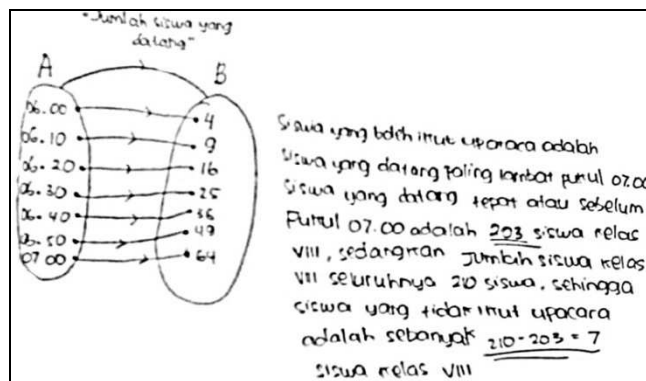 "Jumlah siswa yang
datang"
A
B
06.00
06.10
06.20
06.30
06.40
06.50
07.00
4
9
16
25
36
49
64
Siswa yang boleh ikut upacara adalah
siswa yang datang paling lambat pukul 07.00
siswa yang datang tepat atau sebelum
Pukul 07.00 adalah 203 siswa kelas
VIII, sedangkan Jumlah siswa kelas
VIII seluruhnya 210 siswa, sehingga
siswa yang tidak ikut upacara
adalah sebanyak 210 - 203 = 7
siswa kelas VIII